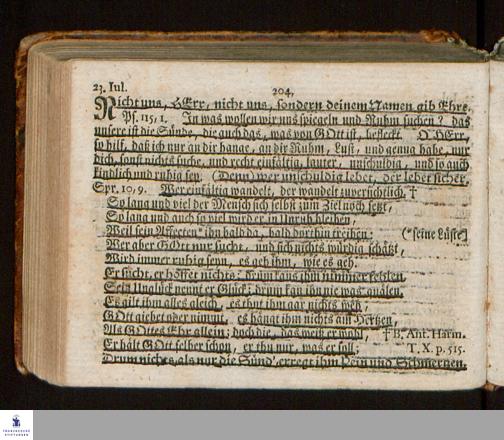 23. Jul.
204,
Nicht uns, HErr, nicht uns, sondern deinem Namen gib Ehre.
Ps. 115, 1. In was wollen wir uns spiegeln und Ruhm suchen? das
unsere ist die Sünde, die auch das, was von GOtt ist, befleckt. O HErr,
so hilf, daß ich nur an dir hange, an dir Ruhm, Lust, und genug habe, nur
dich, sonst nichts suche, und recht einfältig, lauter, unschuldig, und so auch
kindlich und ruhig sey. (Denn) wer unschuldig lebet, der lebet sicher.
Spr. 10, 9. Wer einfältig wandelt, der wandelt zuversichtlich. †
So lang und viel der Mensch sich selbst zum Ziel noch setzt,
So lang und auch so viel wird er in Unruh bleiben,
Weil sein Affecten* ihn bald da, bald dorthin treiben: (*seine Lüste)
Wer aber GOtt nur sucht, und sich nichts würdig schätzt,
Wird immer ruhig seyn, es geh ihm, wie es geh.
Er sucht, er hoffet nichts: drum kans ihm nimmer fehlen.
Sein Unglück nennt er Glück: drum kan ihn nie was quälen.
Es gilt ihm alles gleich, es thut ihm gar nichts weh,
GOtt giebet oder nimmt, es hängt ihm nichts am Hertzen,
Als GOttes Ehr allein; doch die, das weiß er wohl, † B. Ant. Harm.
Er hält GOtt selber schon, er thu nur, was er soll; T. X. p. 515.
Drum nichts, als nur die Sünd', erregt ihm Pein und Schmertzen.
FRANCKESCHE
STIFTUNGEN